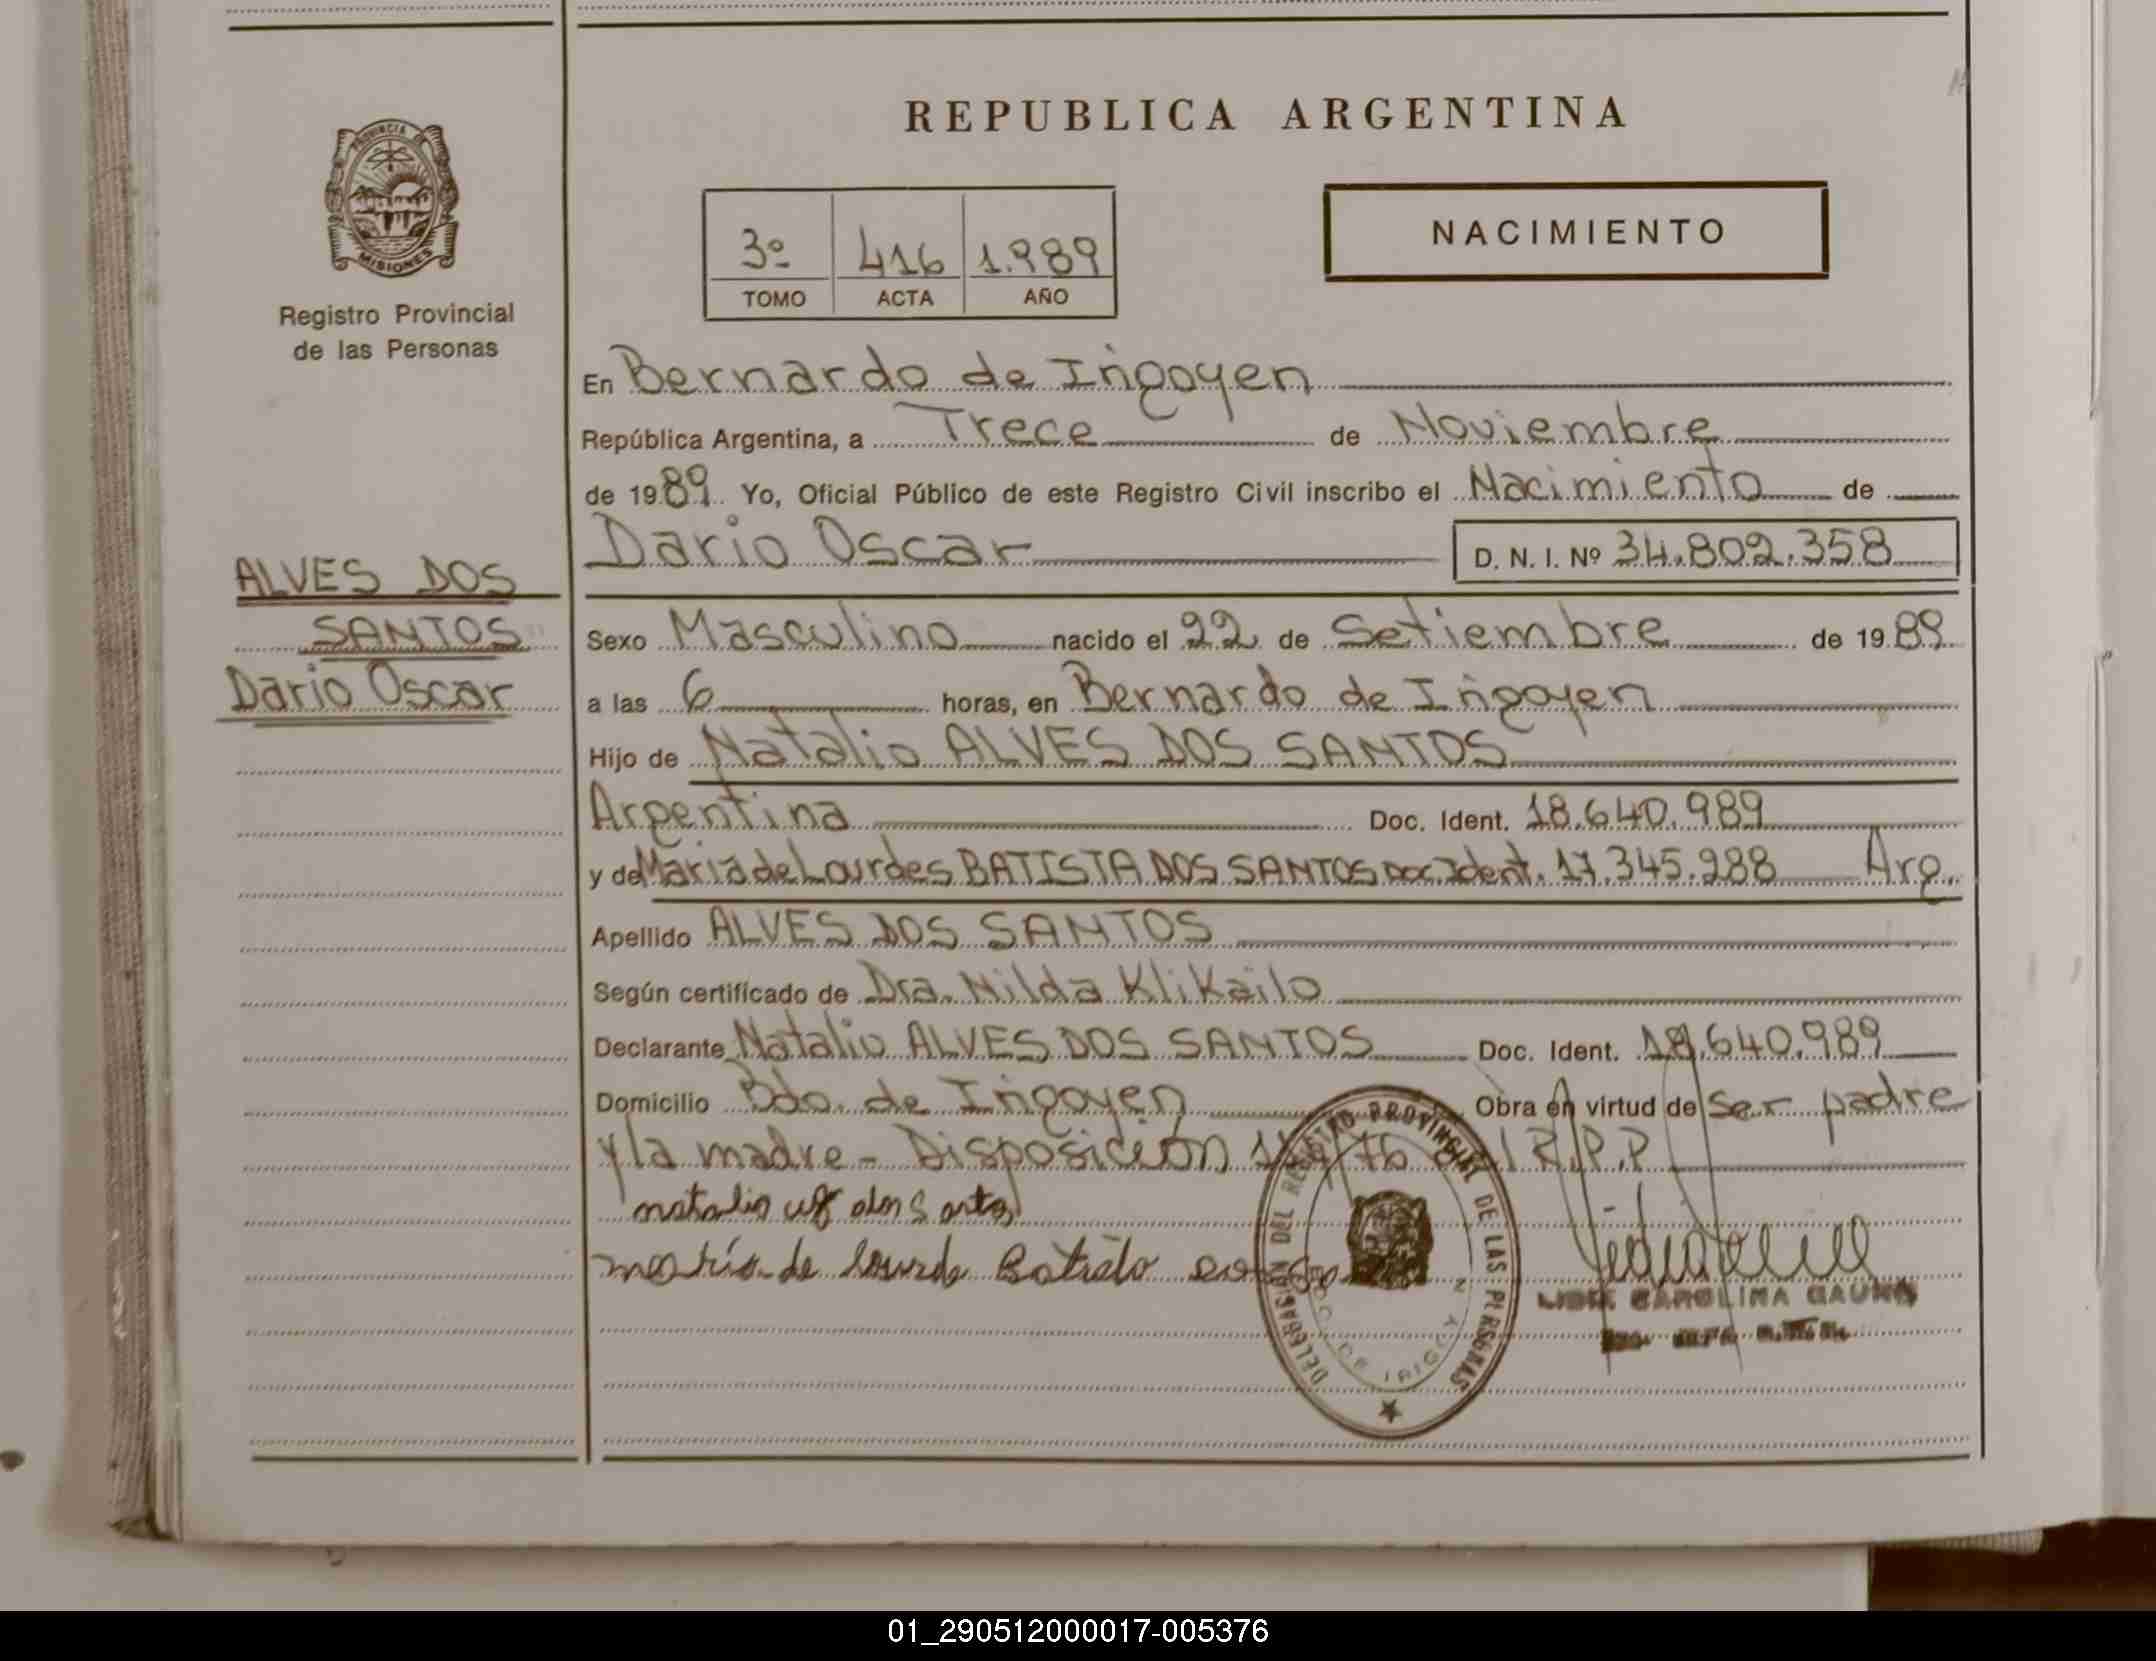 REPUBLICA ARGENTINA
PROVINCIA DE MISIONES
Registro Provincial
de las Personas
3º 416 1.989
TOMO ACTA AÑO
NACIMIENTO
En Bernardo de Irigoyen
República Argentina, a Trece de Noviembre
de 1989. Yo, Oficial Público de este Registro Civil inscribo el Nacimiento de
Dario Oscar D. N. I. Nº 34.802.358
ALVES DOS
SANTOS
Dario Oscar
Sexo Masculino nacido el 22 de Setiembre de 1989
a las 6 horas, en Bernardo de Irigoyen
Hijo de Natalio ALVES DOS SANTOS
Argentina Doc. Ident. 18.640.989
y de Maria de Lourdes BATISTA DOS SANTOS Doc. Ident. 17.345.288 Arg.
Apellido ALVES DOS SANTOS
Según certificado de Dra. Nilda Klikailo
Declarante Natalio ALVES DOS SANTOS Doc. Ident. 18.640.989
Domicilio Bdo. de Irigoyen Obra en virtud de ser padre
y la madre - Disposición /76 R.P.P
natalio dos santos
maria de lourde Batista
DELEGACION DEL REGISTRO PROVINCIAL DE LAS PERSONAS
BDO. DE IRIGOYEN
CAROLINA GAUNA
01_290512000017-005376